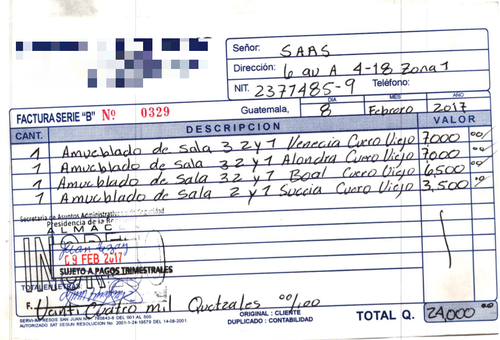 Señor: SAAS
Dirección: 6 av A 4-18 Zona 1
NIT. 2377485-9 Teléfono:
FACTURA SERIE "B" Nº 0329
Guatemala, DIA 8 MES Febrero AÑO 2017
CANT. DESCRIPCION VALOR
1 Amueblado de sala 3 2 y 1 Venecia Cuero Viejo 7000 00/
1 Amueblado de sala 3 2 y 1 Alondra Cuero Viejo 7000
1 Amueblado de sala 3 2 y 1 Boal Cuero Viejo 6500
1 Amueblado de sala 2 y 1 Succia Cuero Viejo 3,500
Secretaría de Asuntos Administrativos Seguridad
Presidencia de la
ALMAC
09 FEB 2017
SUJETO A PAGOS TRIMESTRALES
TOTAL EN LETRAS
F. Veinti Cuatro mil Quetzales 00/100
ORIGINAL : CLIENTE
DUPLICADO : CONTABILIDAD
TOTAL Q. 24,000 00/
AUTORIZADO SAT SEGUN RESOLUCION No. 2001-1-24-19579 DEL 14-08-2001